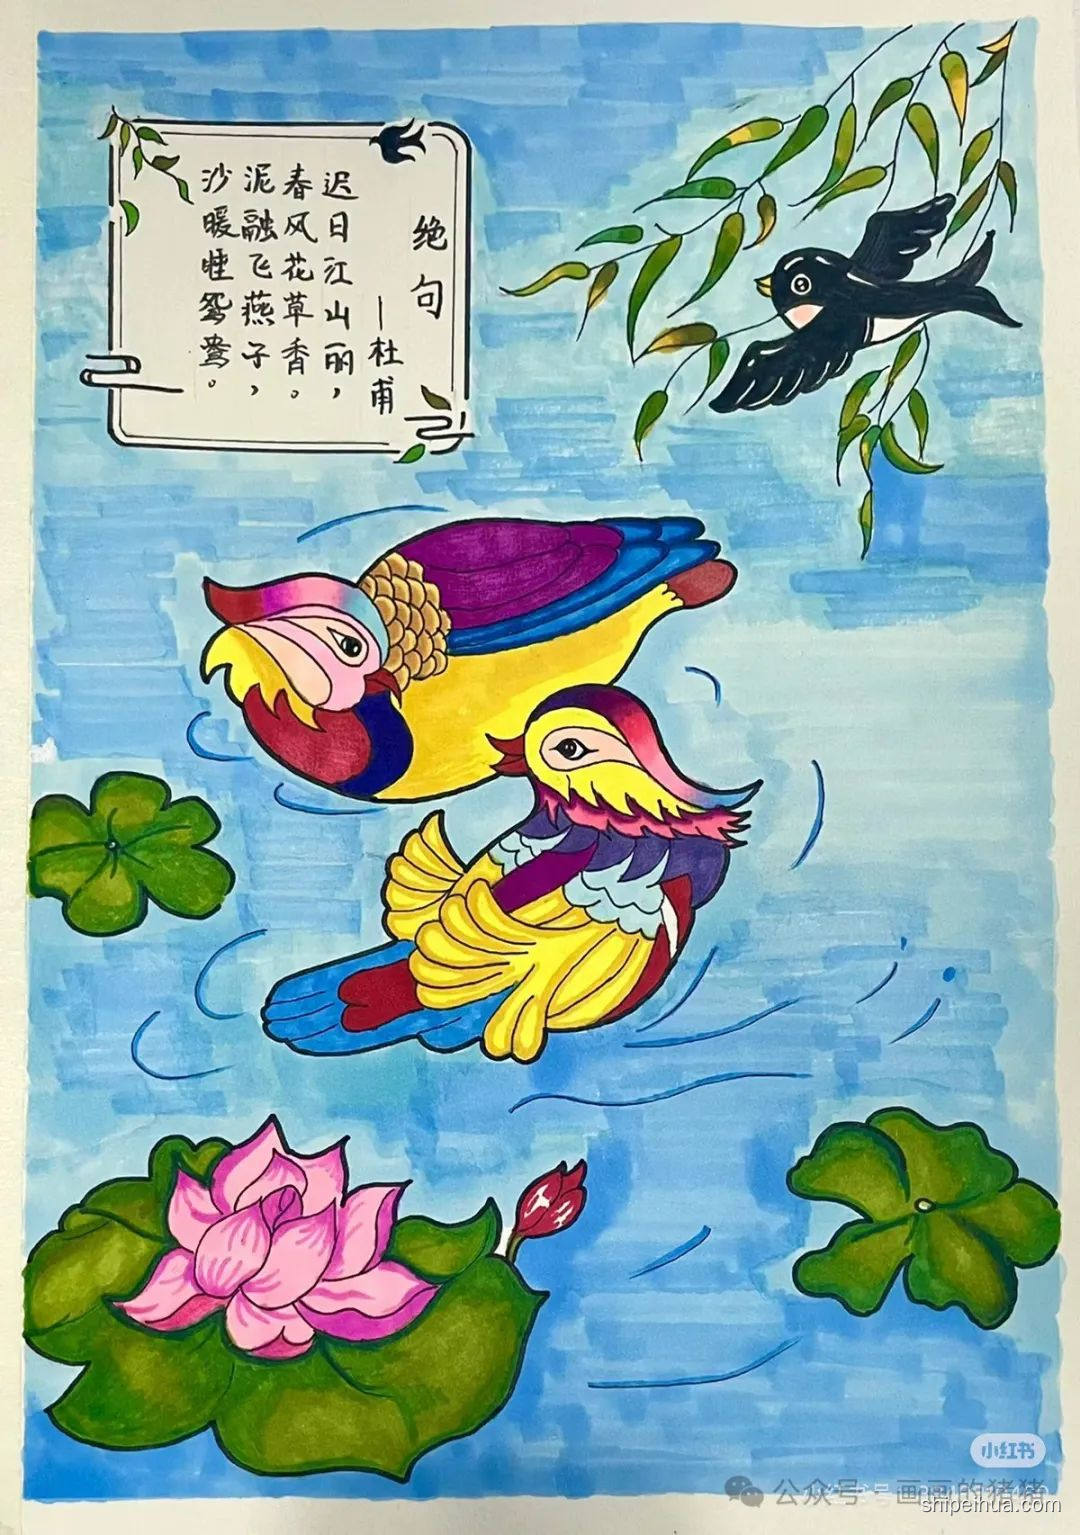 绝句
—杜甫
迟日江山丽，
春风花草香。
泥融飞燕子，
沙暖睡鸳鸯。
小红书
公众号 · 画画的猪猪
shipeihua.com